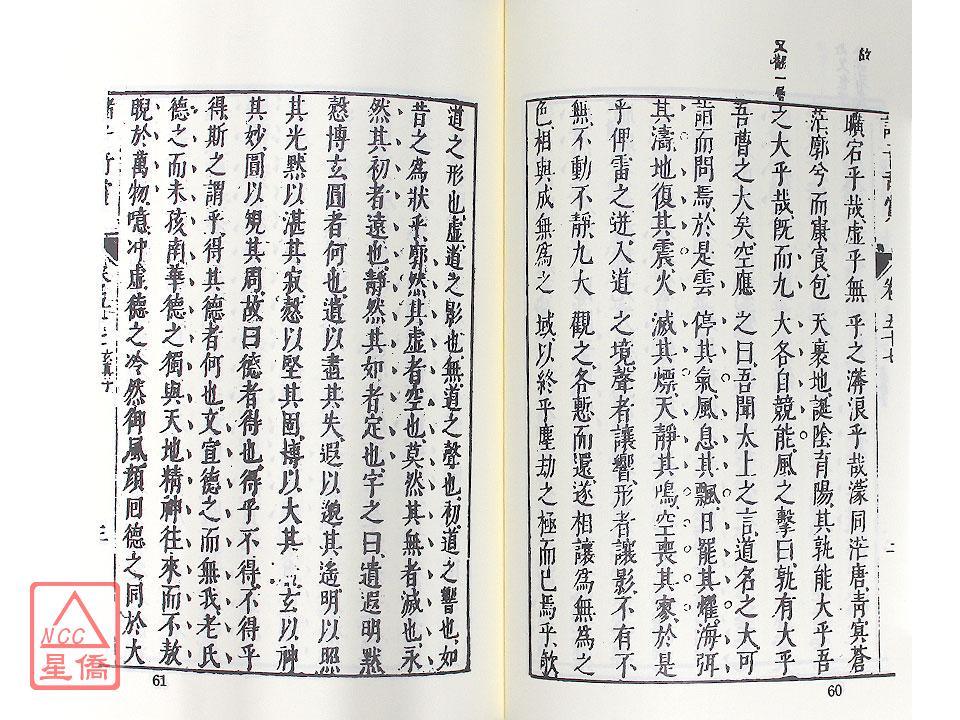 故
又觀一層
諸子奇賞 卷五十七 二
曠宕乎哉虛乎無乎之漭浪乎哉濛同茫唐青冥蒼
茫廓兮而康㝗包天裹地誕陰育陽其孰能大乎吾
之大乎哉既而九大各自競能風之擊曰孰有大乎
吾曹之大矣空應之曰吾聞太上之言道名之大可
詣而問焉於是雲停其氣風息其飄日罷其燿海弭
其濤地復其震火滅其熛天靜其鳴空喪其寥於是
乎俾雷之迸入道之境聲者讓響形者讓影不有不
無不動不靜九大觀之各慙而還遂相讓為無為之
色相與成無為之域以終乎塵劫之極而已焉乎歆
60
道之形也虛道之影也無道之聲也初道之響也如
昔之為狀乎廓然其虛者空也莫然其無者滅也永
然其初者遠也靜然其如者定也字之曰遺遐明默
愨博玄圓者何也遺以盡其失遐以邈其遙明以照
其光默以湛其寂愨以堅其固博以大其玄以神
其妙圓以規其周故曰德者得也得乎不得不得乎
得斯之謂乎得其德者何也文宣德之而無我老氏
德之而未孩南華德之獨與天地精神往來而不敖
睨於萬物噫冲虛德之泠然御風顏回德之同於大
諸子奇賞 三
61
NCC
星僑